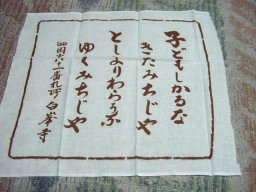 子どもしかるな
きたみちじや
としよりわらうな
ゆくみちじや
四国八十一番札所 白峯寺